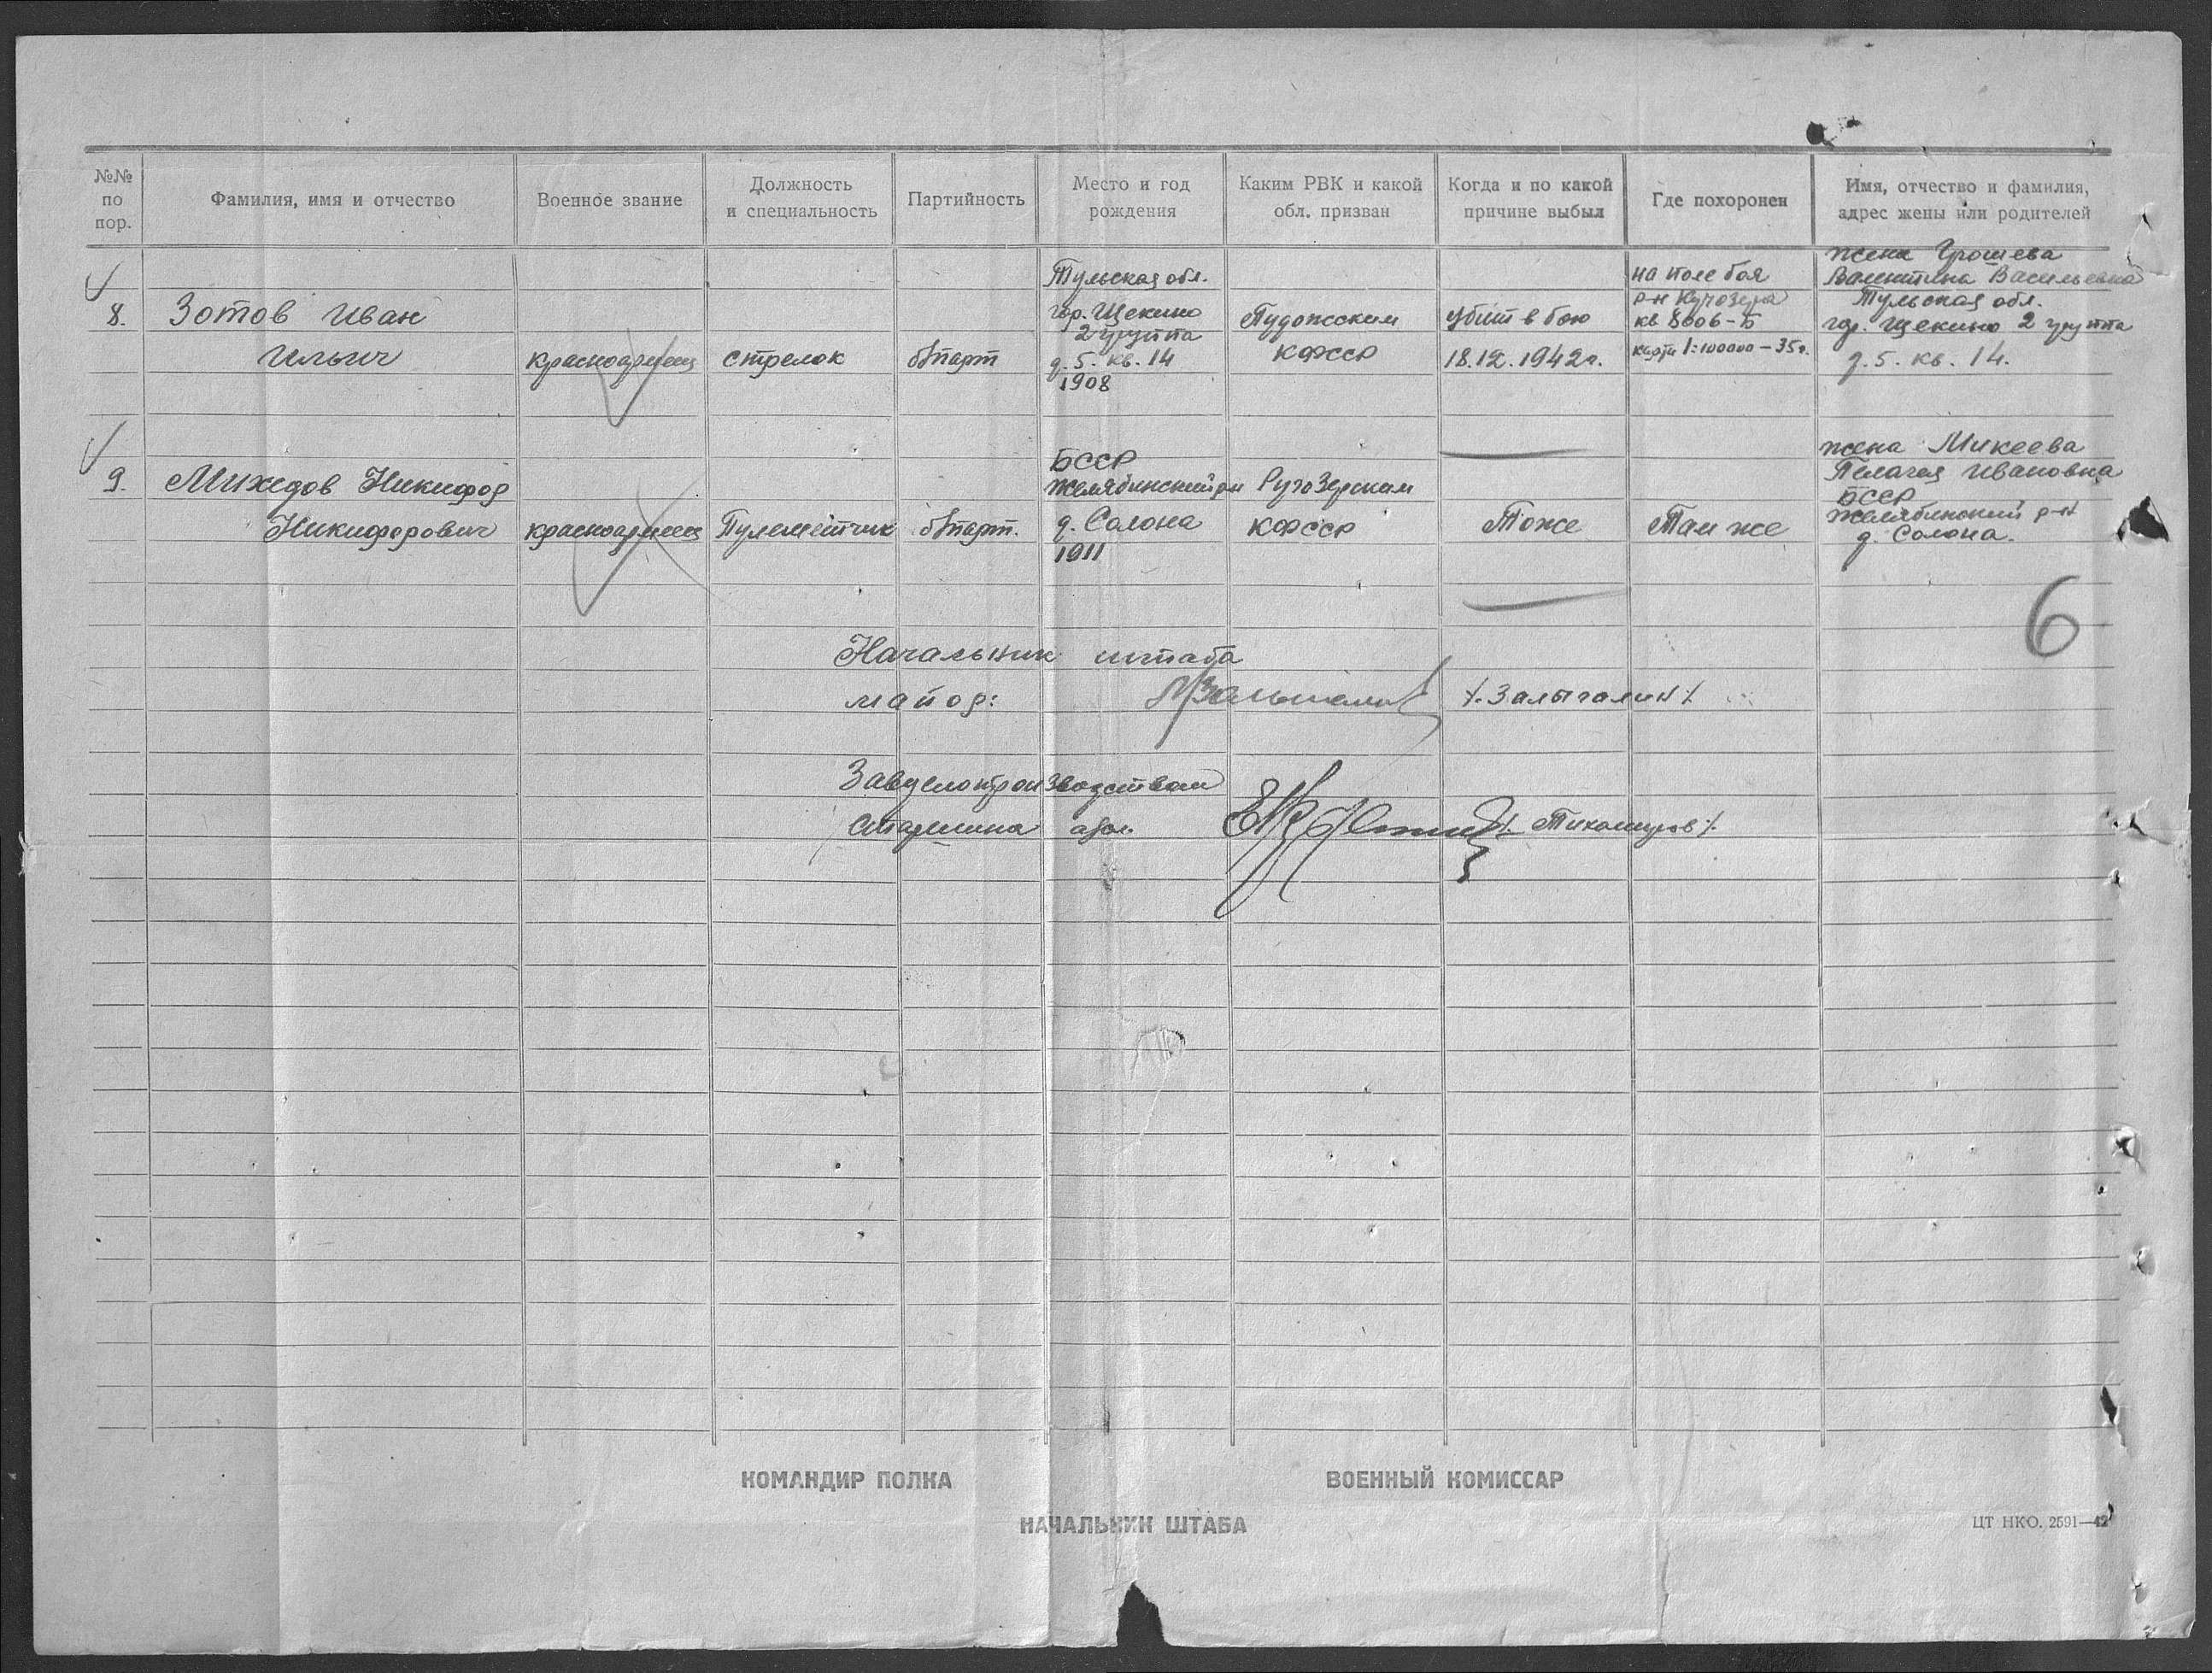 №№ по пор.
Фамилия, имя и отчество
Военное звание
Должность и специальность
Партийность
Место и год рождения
Каким РВК и какой обл. призван
Когда и по какой причине выбыл
Где похоронен
Имя, отчество и фамилия, адрес жены или родителей
8.
Зотов Иван
Ильич
красноармеец
стрелок
б/парт
Тульская обл.
гор. Щекино
2 группа
д. 5. кв. 14
1908
Пудожским
КФССР
убит в бою
18.12.1942г.
на поле боя
р-н Кучозера
кв 8606-Б
карта 1:100000-35г.
жена Грошева
Валентина Васильевна
Тульская обл.
гор. Щекино 2 группа
д. 5. кв. 14.
9.
Михедов Никифор
Никифорович
красноармеец
Пулеметчик
б/парт.
БССР
Желябинский р-н
д. Солона
1911
Ругозерским
КФССР
Тоже
Там же
жена Микеева
Пелагея Ивановна
БССР
Желябинский р-н
д. Солона.
6
Начальник штаба
майор:
/. Залыгалин /.
Завделопроизводством
старшина а/сл.
/. Тихомиров /.
КОМАНДИР ПОЛКА
ВОЕННЫЙ КОМИССАР
НАЧАЛЬНИК ШТАБА
ЦТ НКО. 2591—42